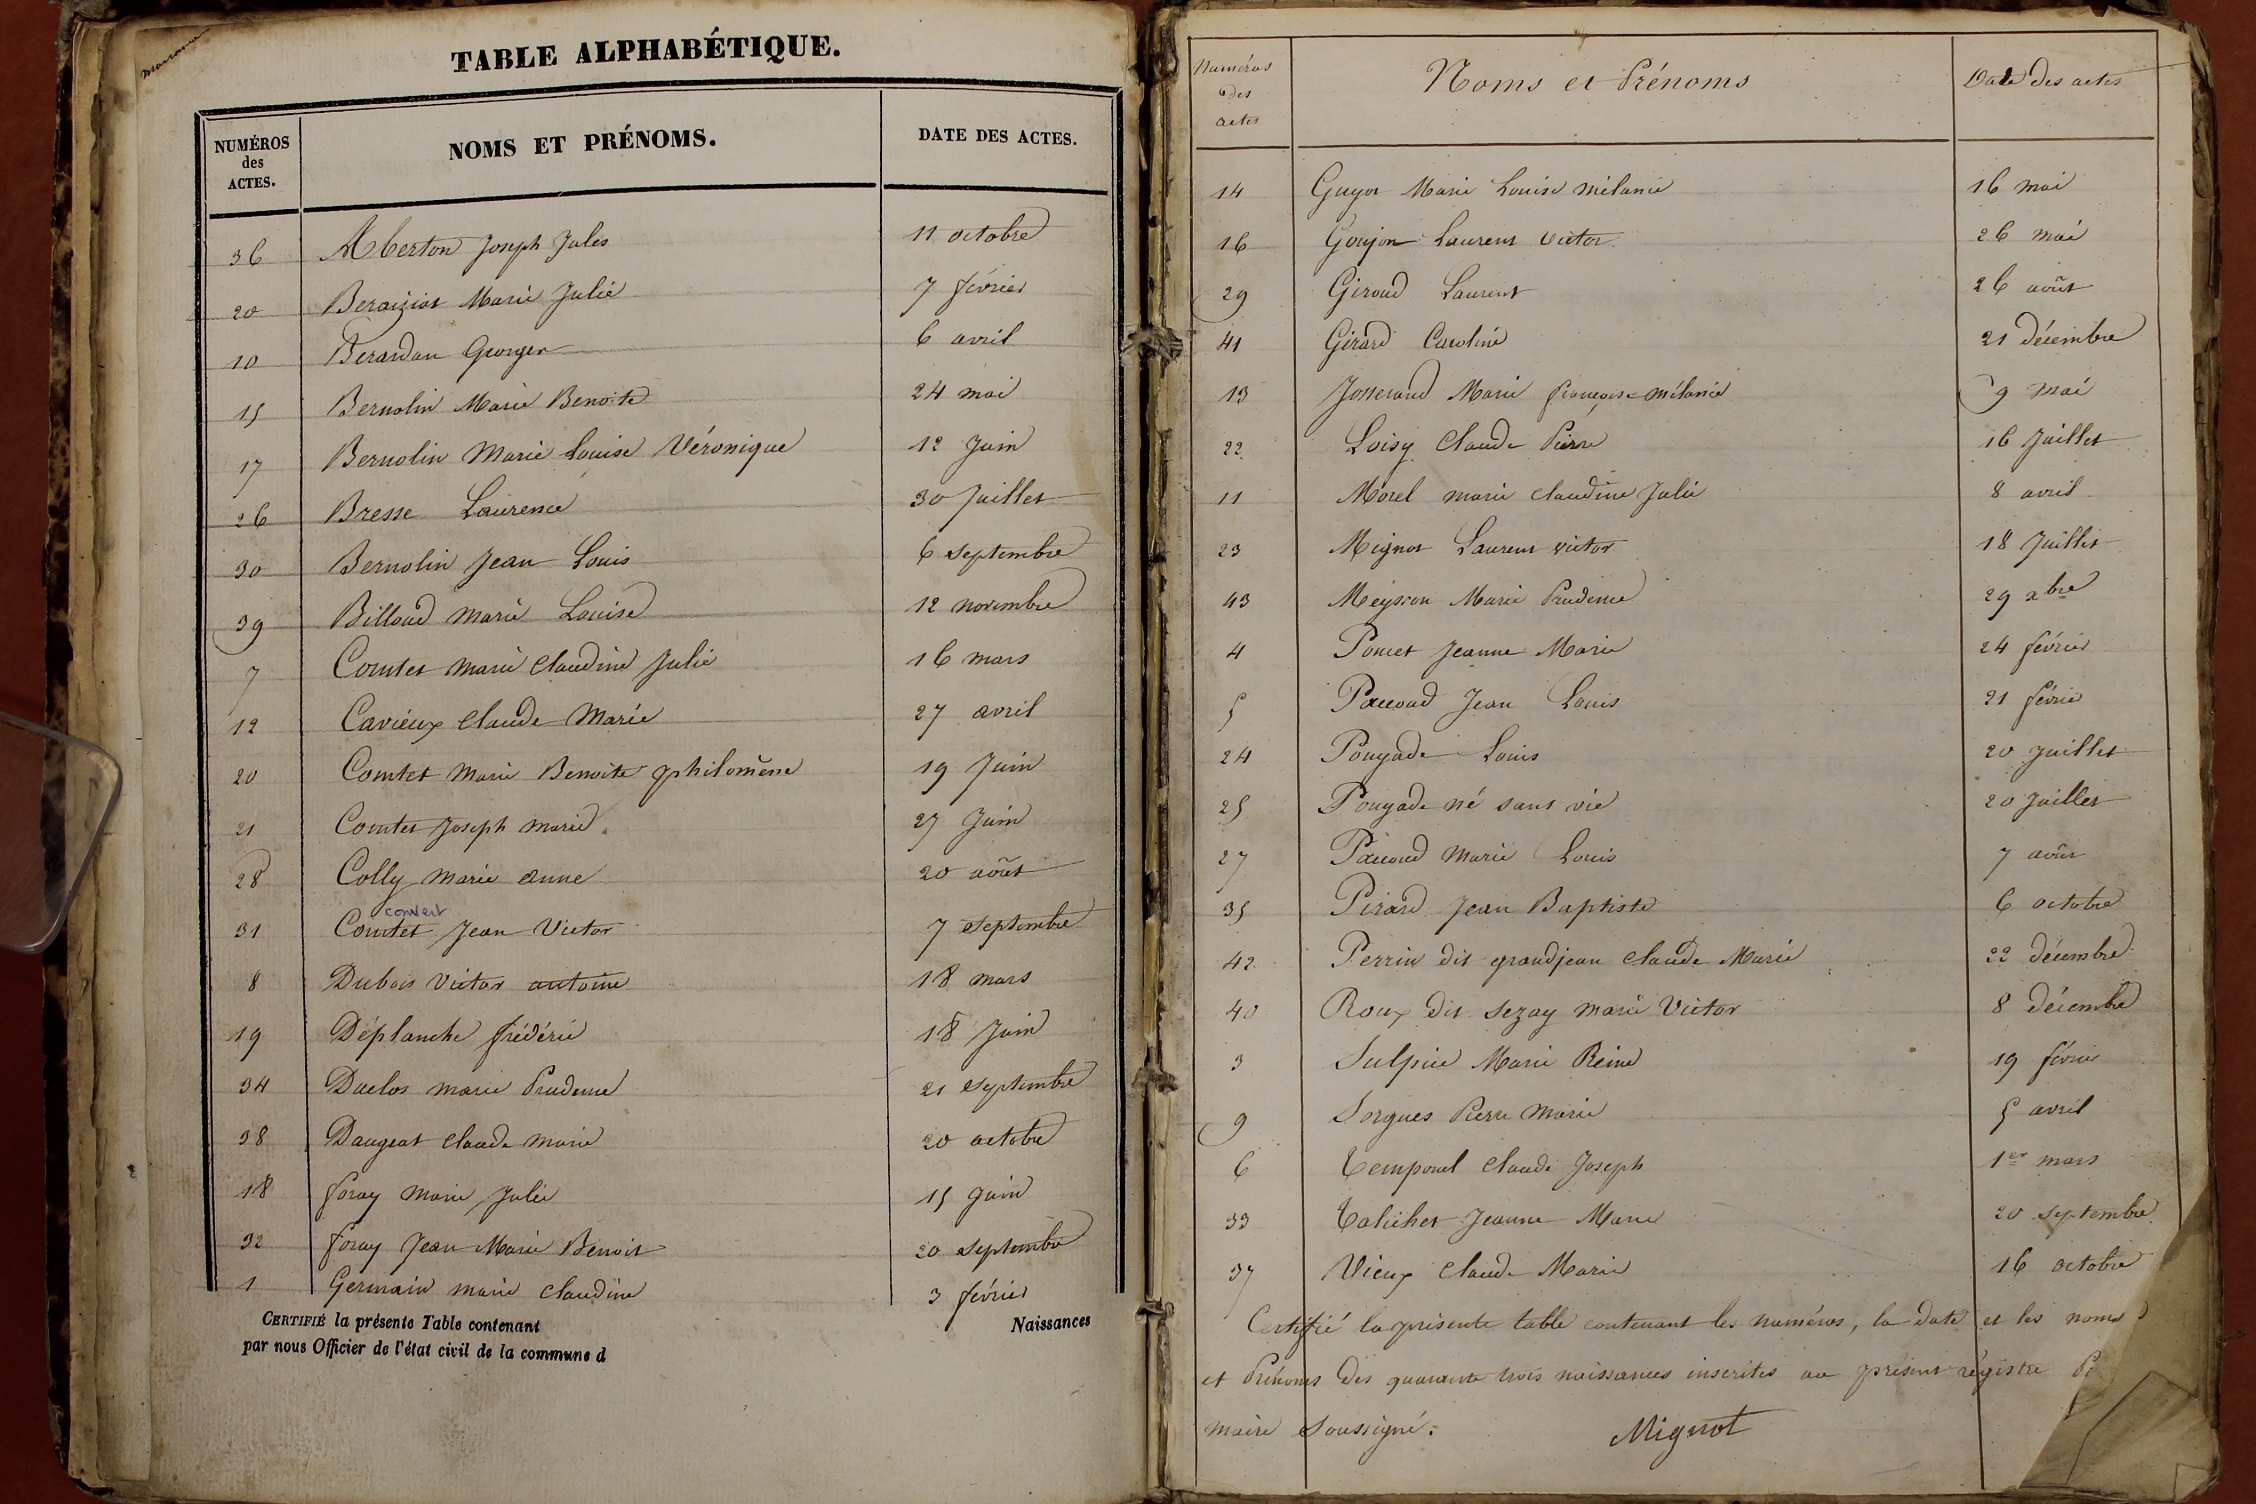 TABLE ALPHABÉTIQUE.
NUMÉROS des ACTES. NOMS ET PRÉNOMS. DATE DES ACTES.
36 Alberton Joseph Jules 11 octobre
20 Beraiziat Marie Julie 7 février
10 Berardan Georges 6 avril
15 Bernolin Marie Benoite 24 mai
17 Bernolin Marie Louise Véronique 12 Juin
26 Bresse Laurence 30 Juillet
30 Bernolin Jean Louis 6 septembre
39 Billoud Marie Louise 12 novembre
7 Comtet Marie Claudine Julie 16 mars
12 Cavieux Claude Marie 27 avril
20 Comtet Marie Benoite philomène 19 Juin
21 Comtet Joseph marie 27 Juin
28 Colly Marie anne 20 août
convert
31 Comtet Jean Victor 7 septembre
8 Dubois Victor antoine 18 mars
19 Déplanche frédéric 18 Juin
34 Duclos marie Prudence 21 septembre
38 Daugeat Claude marie 20 octobre
18 foray Marie Julie 15 Juin
32 foray Jean Marie Benoit 20 septembre
1 Germain marie Claudine 3 février
CERTIFIÉ la présente Table contenant Naissances
par nous Officier de l'état civil de la commune d
Numéros des actes Noms et Prénoms Date des actes
14 Guyot Marie Louise mélanie 16 mai
16 Goujon Laurent Victor 26 mai
29 Giroud Laurent 26 août
41 Girard Caroline 21 décembre
13 Josserand Marie françoise mélanie 9 mai
22 Loisy Claude Pierre 16 Juillet
11 Morel marie Claudine Julie 8 avril
23 Mignot Laurent victor 18 Juillet
43 Meysson Marie Prudence 29 xbre
4 Poncet Jeanne Marie 24 février
5 Pacoud Jean Louis 21 févrie
24 Pougade Louis 20 Juillet
25 Pougade né sans vie 20 Juillet
27 Pacoud Marie Louis 7 août
35 Pirard Jean Baptiste 6 octobre
42 Perrin dit grandjean Claude Marie 22 décembre
40 Roux dit sezay marie Victor 8 décembre
3 Sulpice Marie Reine 19 février
9 Sorgues Pierre Marie 5 avril
6 Temporel Claude Joseph 1er mars
33 Talichet Jeanne Marie 20 septembre
37 Vieux Claude Marie 16 octobre
Certifié la présente table contenant les numéros, la date et les noms
et Prénoms des quarante trois naissances inscrites au présent régistre
maire soussigné.
Mignot